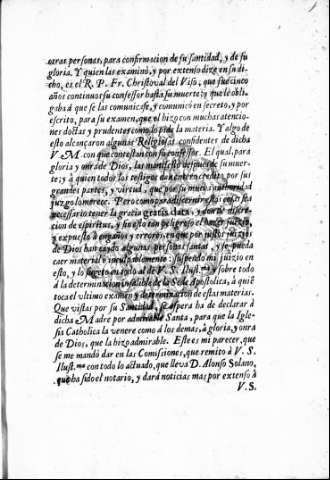 otras personas, para confirmacion de su santidad, y de su
gloria. Y quien las examinó, y por extenso dize en su di-
cho, es el R. P. Fr. Christoval del Viso, que fue cinco
años continuos su confessor hasta su muerte;
gaba á que se las comunicase, y comunicó en secreto, y por
escrito, para su examen, que el hizo con muchas atencio-
nes doctas y prudentes como lo pide la materia. Y algo de
esto alcançaron algunas Religiosas confidentes de dicha
V. M. con que contestan con su confessor. El qual, para
gloria y onra de Dios, las manifestò despues de su muer-
te; y á quien todos los testigos dan entero credito por sus
grandes partes, y virtud, que por su mucha
juzgolo merece. Pero como para discernir estas cosas sea
necessario tener la gratia gratis data, y don de discre-
cion de espiritus, y sin esto tan peligroso el hazer juizio,
y expuesto á engaños y errores, en que por justos juizios
de Dios han caido algunas personas santas, y se pueda
caer material e inculpablemente: suspendo mi juizio en
esto, y lo sujeto en todo al de V. S. Ilust.ma y sobre todo
á la determinacion infalible de la Sede Apostolica, à quiẽ
toca el ultimo examen y determinacion de estas materias.
Que vistas por su Santidad, se espera ha de declarar á
dicha Madre por admirable Santa, para que la Igle-
sia Catholica la venere como à los demas, à gloria, y onra
de Dios, que la hizo admirable. Este es mi parecer, que
se me mandó dar en las Comissiones, que remito à V. S.
Ilust.ma con todo lo actuado, que lleva D. Alonso Solano,
que ha sido el notario, y dará noticias mas por extenso à
V. S.